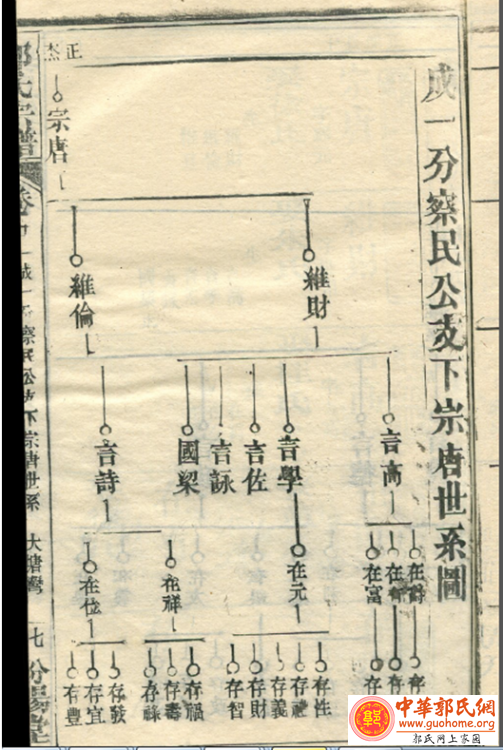 成一分察民公支下宗唐世系圖
正杰
宗唐
維財
維倫
言高
言學
言佐
言詠
國梁
言詩
在爵
在富
在元
在祥
在位
存性
存禮
存義
存財
存智
存福
存壽
存祿
存發
存宜
存豐
郭氏宗譜
察民公支下宗唐世系
大塘灣
七
汾陽堂
中華郭氏網
www.guohome.com
郭氏网上家园